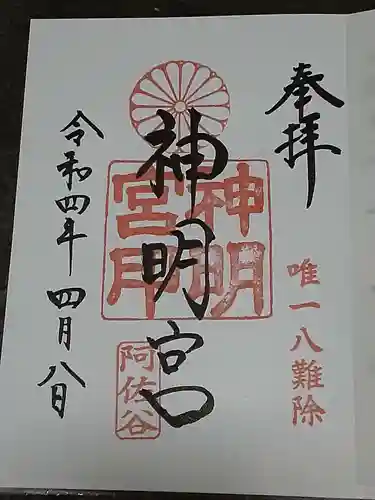 奉拝
唯一八難除
神明宮
神明宮印
阿佐谷
令和四年四月八日